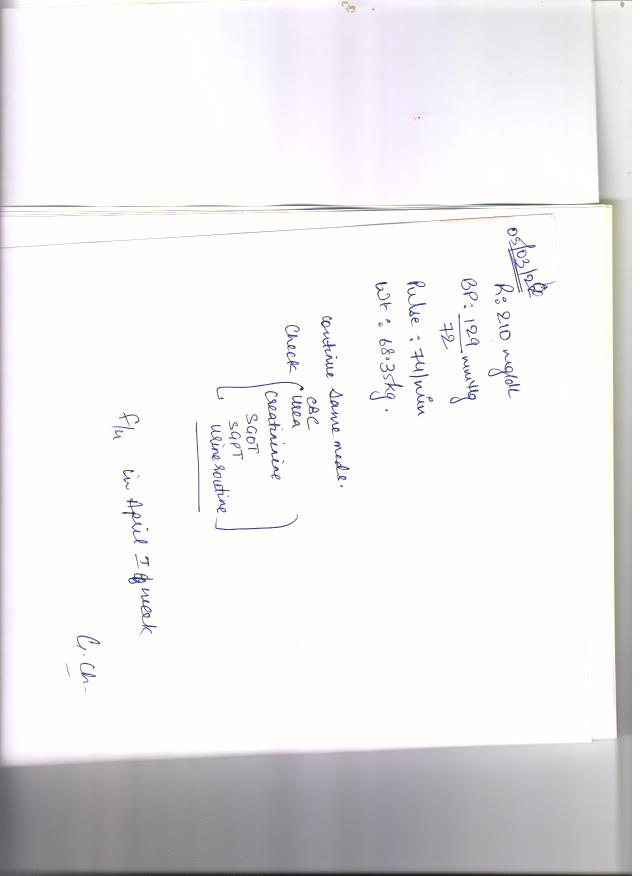 05/03/22
R: 210 mg/dl
BP: 129 mmHg
72
Pulse: 74/min
Wt: 68.35kg.
continue same meds.
Check CBC
Urea
Creatininine
SGOT
SGPT
Urine routine
f/u in April I week
G. Ch-